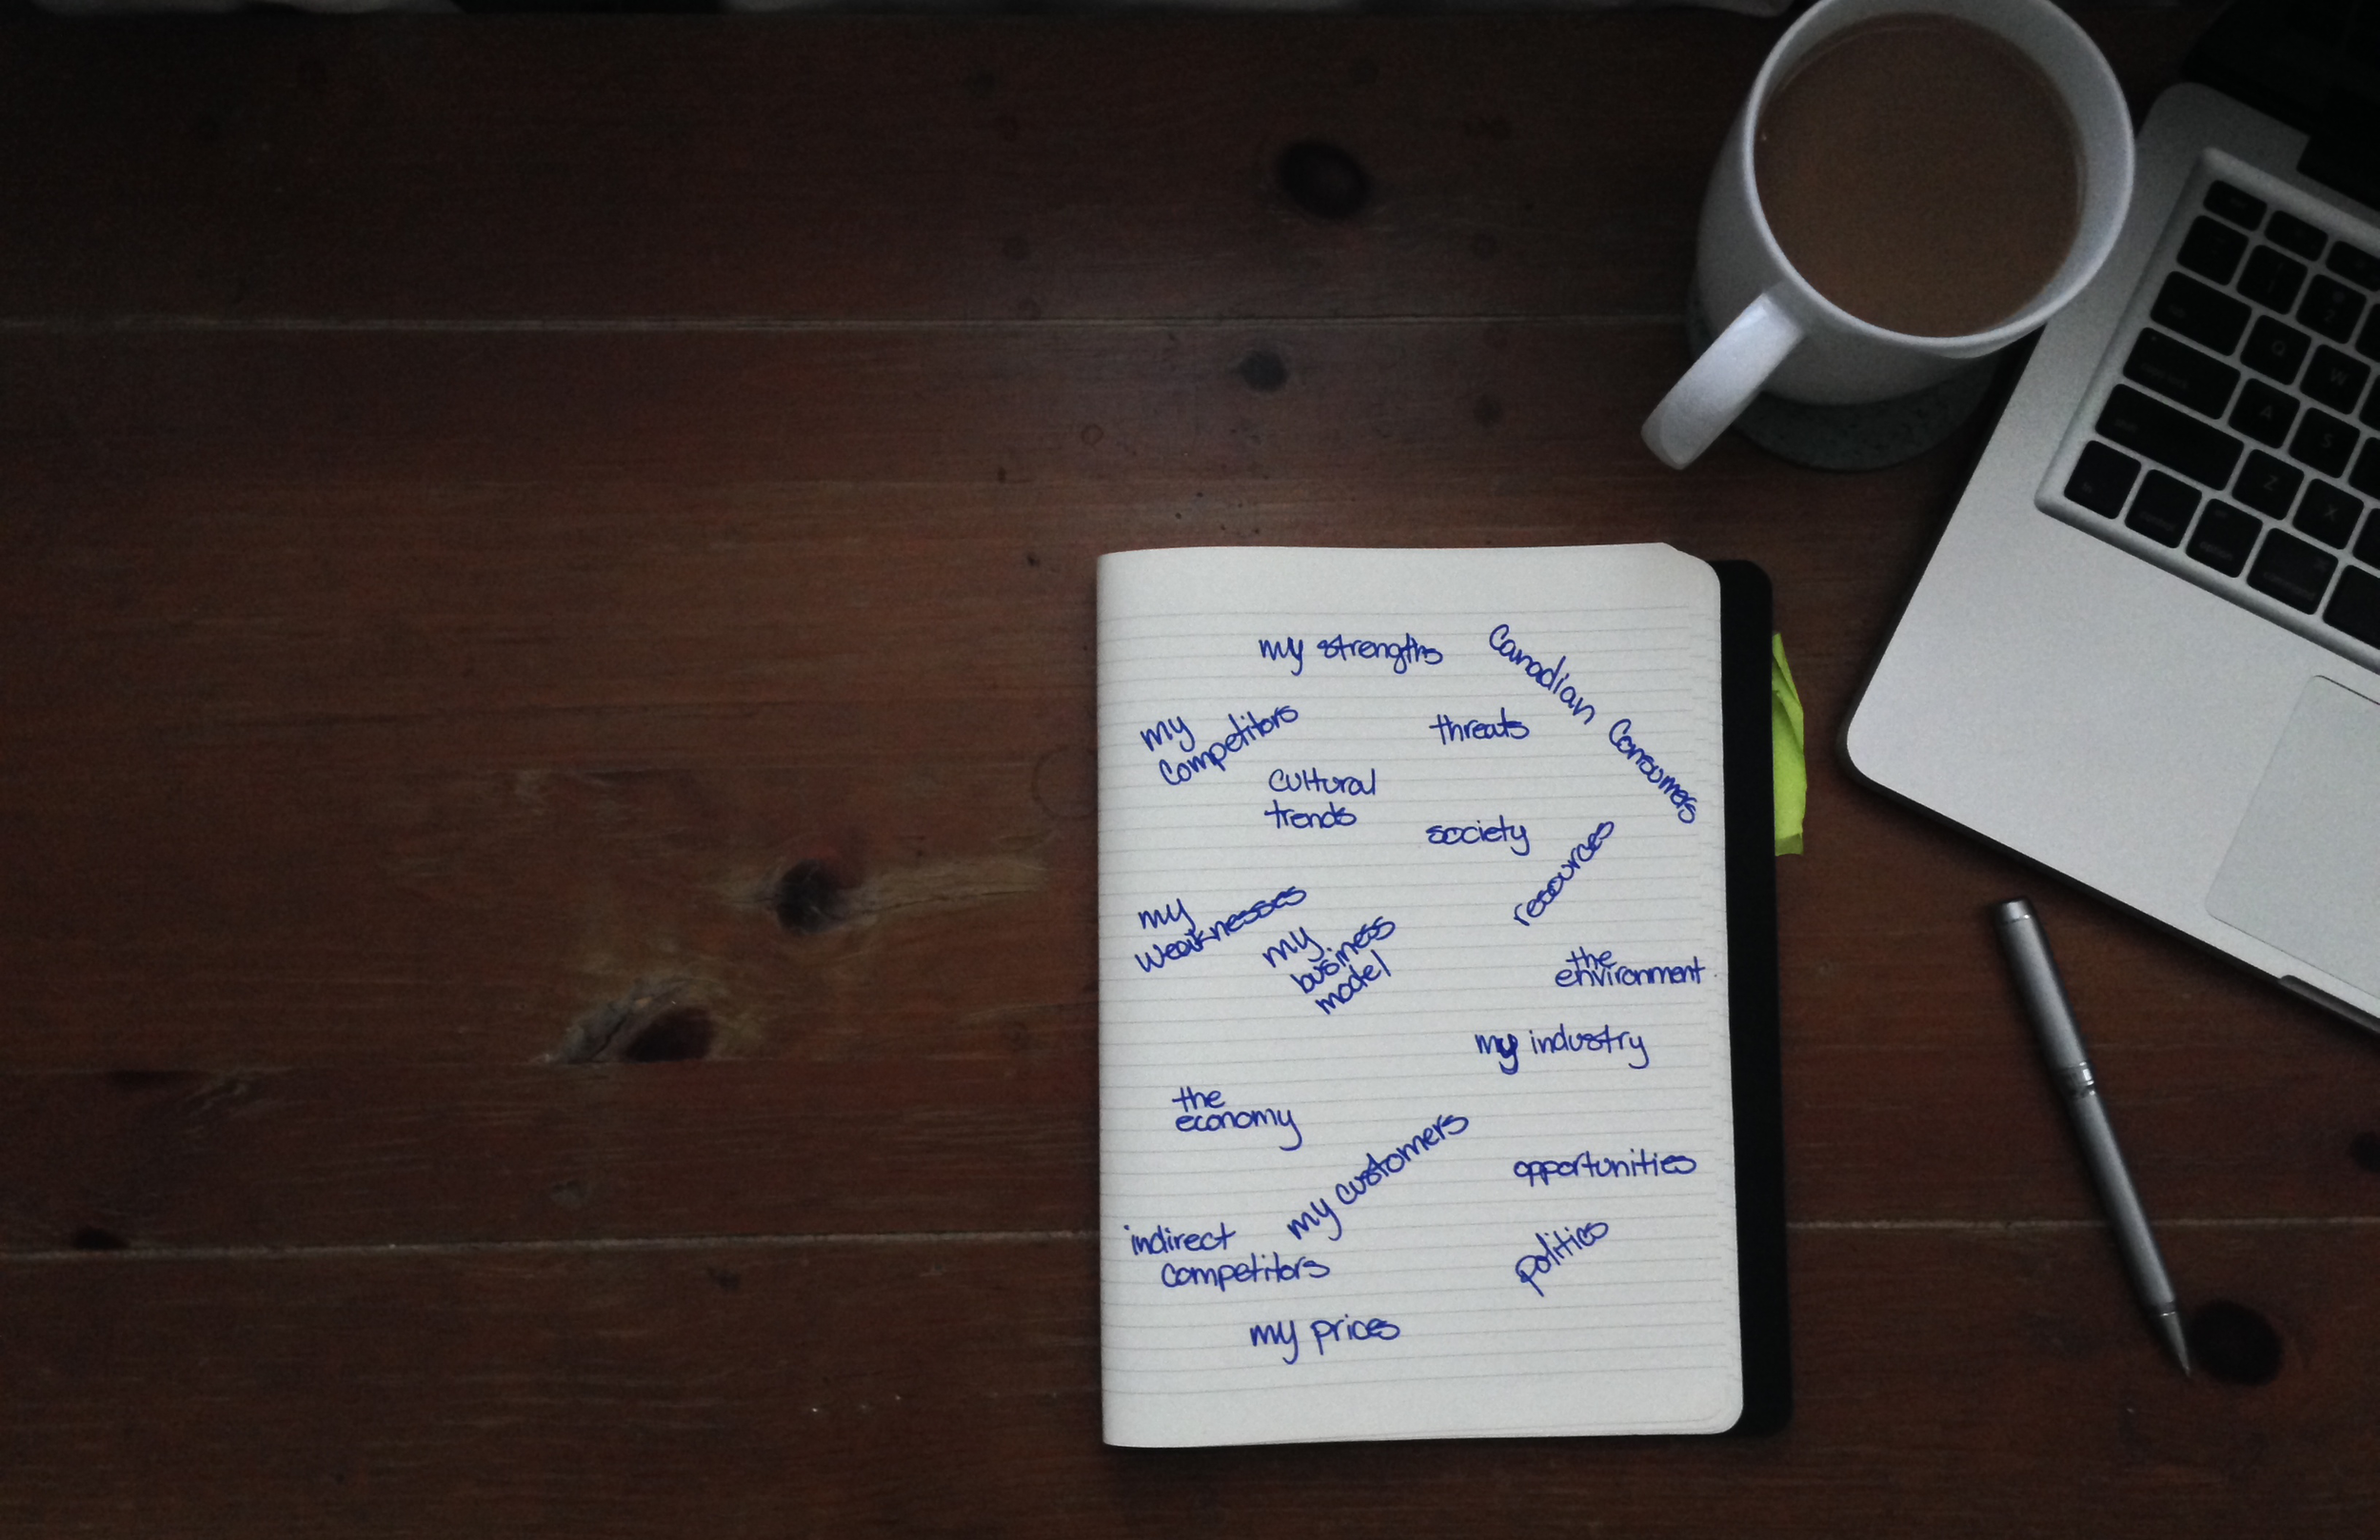 my strengths
Canadian Consumers
my
competitors
threats
cultural
trends
society
resources
my
weaknesses
my
business
model
the
environment
my industry
the
economy
my customers
opportunities
indirect
competitors
politics
my prices
Q
W
A
S
Z
X